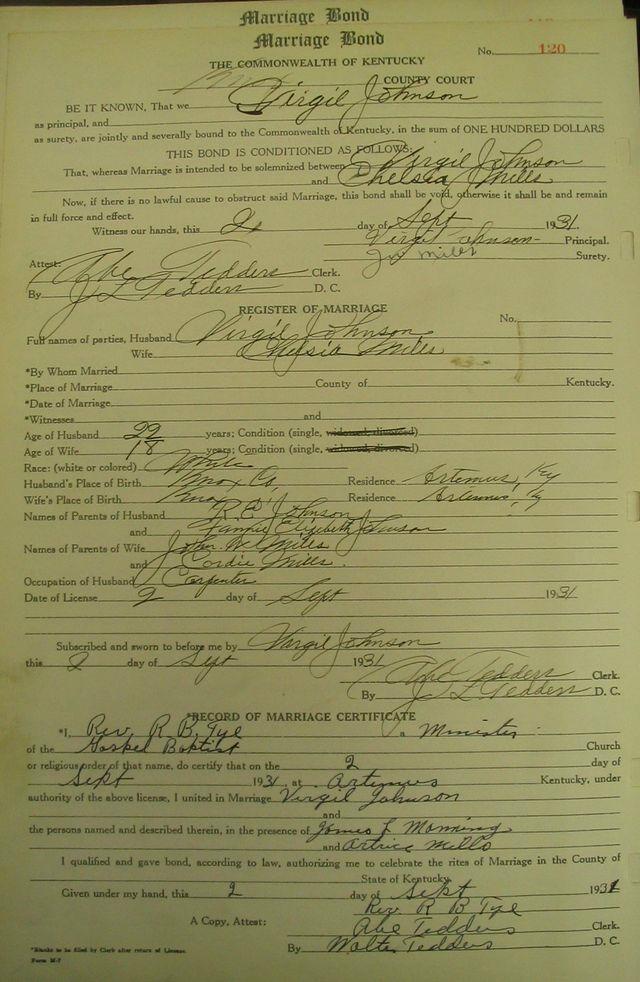 Marriage Bond
Marriage Bond
No. 120
THE COMMONWEALTH OF KENTUCKY
COUNTY COURT
BE IT KNOWN, That we Virgil Johnson
as principal, and
as surety, are jointly and severally bound to the Commonwealth of Kentucky, in the sum of ONE HUNDRED DOLLARS
THIS BOND IS CONDITIONED AS FOLLOWS:
That, whereas Marriage is intended to be solemnized between Virgil Johnson
and Chelsia Mills
Now, if there is no lawful cause to obstruct said Marriage, this bond shall be void, otherwise it shall be and remain
in full force and effect.
Witness our hands, this 2 day of Sept 1931.
Virgil Johnson Principal.
Mills Surety.
Attest: Abe Tedders Clerk.
By J L Tedders D. C.
REGISTER OF MARRIAGE
No.
Full names of parties, Husband Virgil Johnson
Wife Chelsia Mills
*By Whom Married
*Place of Marriage County of Kentucky.
*Date of Marriage
*Witnesses and
Age of Husband 22 years; Condition (single, widowed, divorced)
Age of Wife 18 years; Condition (single, widowed, divorced)
Race: (white or colored) White
Husband's Place of Birth Knox Co, Residence Artemus, Ky
Wife's Place of Birth Knox Residence Artemus, Ky
Names of Parents of Husband Johnson
and Fannie Elizabeth Johnson
Names of Parents of Wife John Mills
and Cordie Mills.
Occupation of Husband Carpenter
Date of License 2 day of Sept 1931
Subscribed and sworn to before me by Virgil Johnson
this 2 day of Sept 1931
Abe Tedders Clerk.
By J L Tedders D. C.
*RECORD OF MARRIAGE CERTIFICATE
*I, Rev. R B Tye a Minister
of the Gospel Baptist Church
or religious order of that name, do certify that on the 2 day of
Sept 1931, at Artemus Kentucky, under
authority of the above license, I united in Marriage Virgil Johnson
and
the persons named and described therein, in the presence of James L Manning
and Mills
I qualified and gave bond, according to law, authorizing me to celebrate the rites of Marriage in the County of
State of Kentucky.
Given under my hand, this 2 day of Sept 1931
Rev. R B Tye
A Copy, Attest: Abe Tedders Clerk.
By Walter Tedders D. C.
*Blanks to be filled by Clerk after return of License.
Form M-7